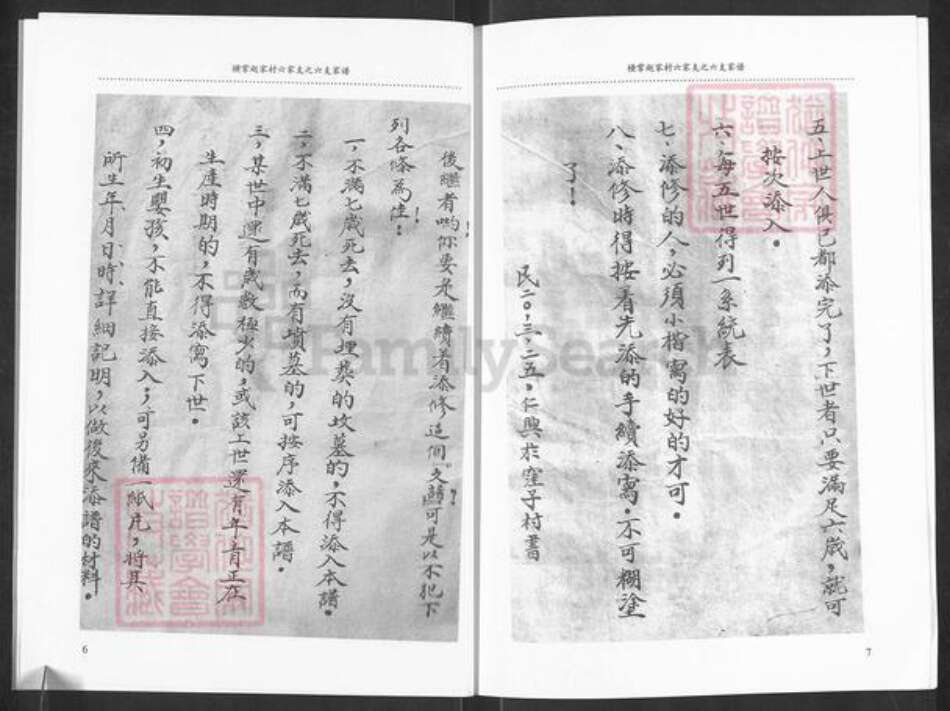 横掌赵家村六家支之六支家谱
後繼者喲！你要是繼續着添修這個文譜？可是以不犯下
列各條為佳！：
一，不满七歲死去，沒有埋葬的坟墓的，不得添入本譜。
二，不满七歲死去，而有墳墓的，可按序添入本譜。
三，某世中還有歲數極少的，或該上世還有年青正在
生產時期的，不得添寫下世。
四，初生嬰孩，不能直接添入，可另備一紙片，將其
所生年、月、日、時、詳細記明，以做後來添譜的材料。
6
横掌赵家村六家支之六支家谱
五、上世人俱已都添完了，下世者只要滿足六歲，就可
按次添入。
六、每五世得列一系統表
七、添修的人，必須小楷寫的好的才可。
八、添修時得按着先添的手續添寫。不可糊塗
了！
民二〇，三，二五，仁興於窪子村書
7
FamilySearch